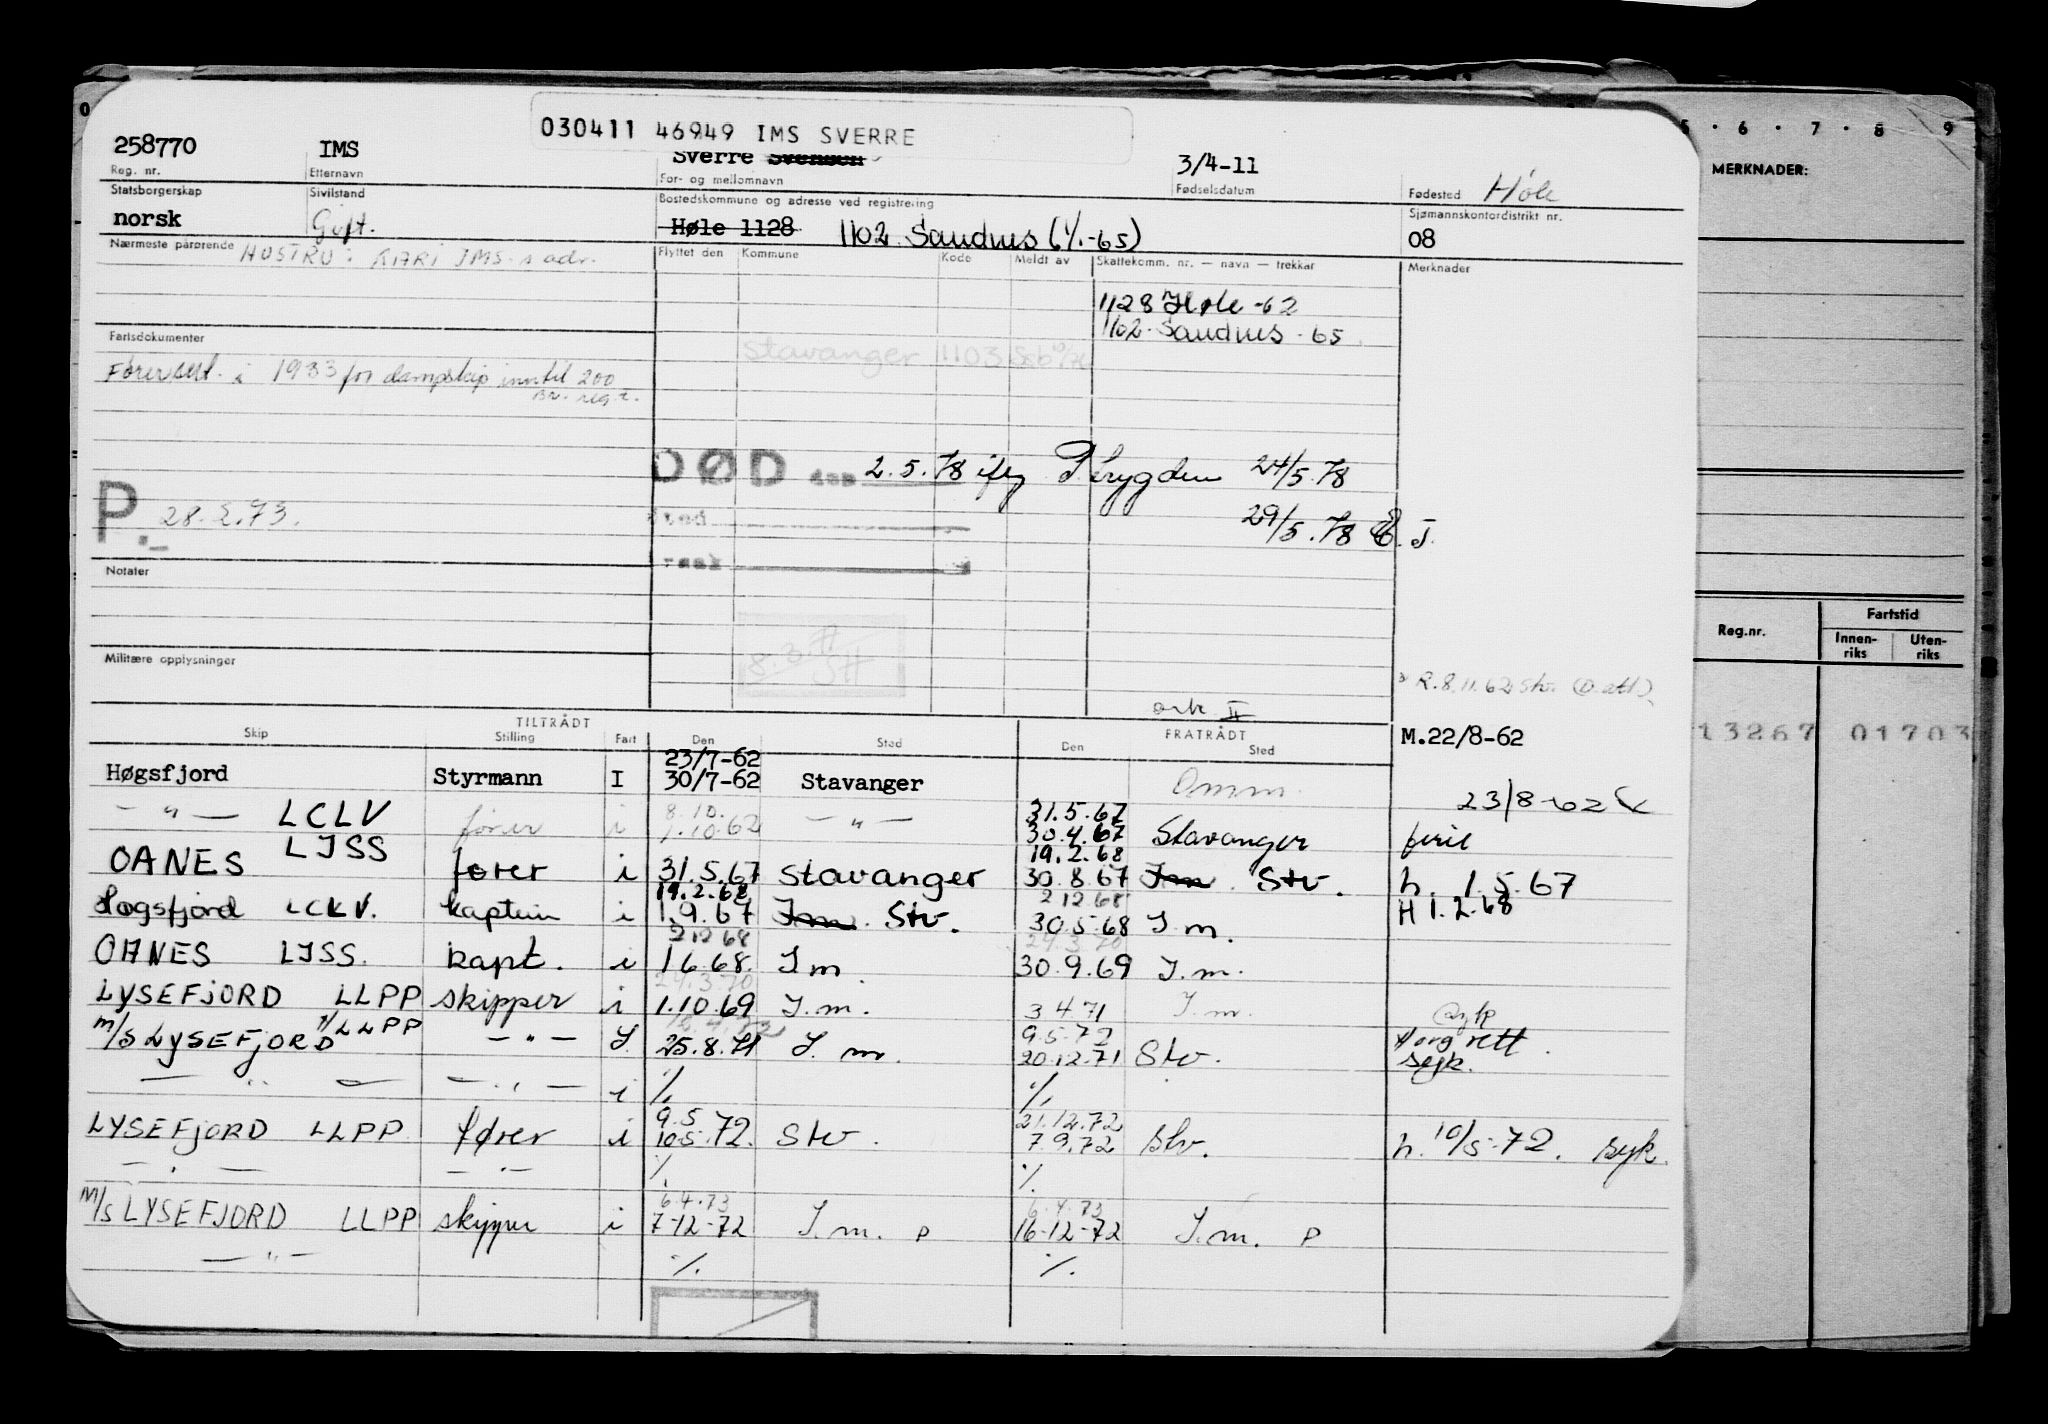 030411 46949 IMS SVERRE
258770 IMS Sverre Svensen 3/4-11
Reg. nr. Etternavn For- og mellomnavn Fødselsdatum Fødested Høle
Statsborgerskap Sivilstand Bostedskommune og adresse ved registrering Sjømannskontordistrikt nr.
norsk Gift. Høle 1128 1102 Sandnes (1/1-65) 08
Nærmeste pårørende HUSTRU: KARI IMS s adr. Flyttet den Kommune Kode Meldt av Skattekomm. nr. — navn — trekkår Merknader
1128 Høle -62
1102 Sandnes -65
Fartsdokumenter
Stavanger 1103
Førersert. i 1933 for dampskip inntil 200
Br. reg. t.
DØD den 2.5.78 iflg P.trygden 24/5.78
P. 28.2.73.
Sted 29/5.78 J.
Notater
8.3.
Militære opplysninger
R.8.11.62 Stv.
ark II
TILTRÅDT FRATRÅDT
Skip Stilling Fart Den Sted Den Sted
M.22/8-62
23/7-62
Høgsfjord Styrmann I 30/7-62 Stavanger Omm.
23/8-62
8.10. 31.5.67
— " — LCLV fører i 1.10.62 — " — 30.4.67 Stavanger ferie
19.2.68
OANES LJSS fører i 31.5.67 Stavanger 30.8.67 I.m. Stv. h. 1.5.67
19.2.68 2 12 68
Høgsfjord LCLV. kaptein i 1.9.67 I.m. Stv. 30.5.68 I.m. H 1.2.68
2 12 68 24.3.70
OANES LJSS. kapt. i 1.6.68. I.m 30.9.69 I.m.
24.3.70
LYSEFJORD LLPP skipper i 1.10.69 I.m. 3 4 71 I.m. syk
9.5.72
M/S LYSEFJORD LLPP — " — I. 25.8.71 I.m. 20.12.71 Stv. syk.
— " — — " — i %. %.
9.5 21.12.72
LYSEFJORD LLPP fører i 10.5.72. Stv. 7.9.72 Stv. h. 10/5-72. syk.
— " — — " — %. %.
6.4.73 6.4.73
M/S LYSEFJORD LLPP skipper i 7-12-72 I.m. P 16-12-72 I.m. P
— " — %. %.
5 · 6 · 7 · 8 9
MERKNADER:
Reg.nr. Fartstid
Innen-riks Uten-riks
13267 01703